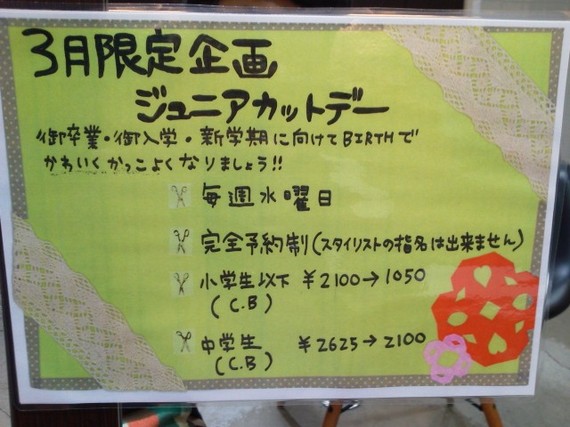 3月限定企画
ジュニアカットデー
御卒業・御入学・新学期に向けてBIRTHで
かわいくかっこよくなりましょう!!
毎週水曜日
完全予約制(スタイリストの指名は出来ません)
小学生以下 ¥2100→1050
(C.B)
中学生 ¥2625→2100
(C.B)